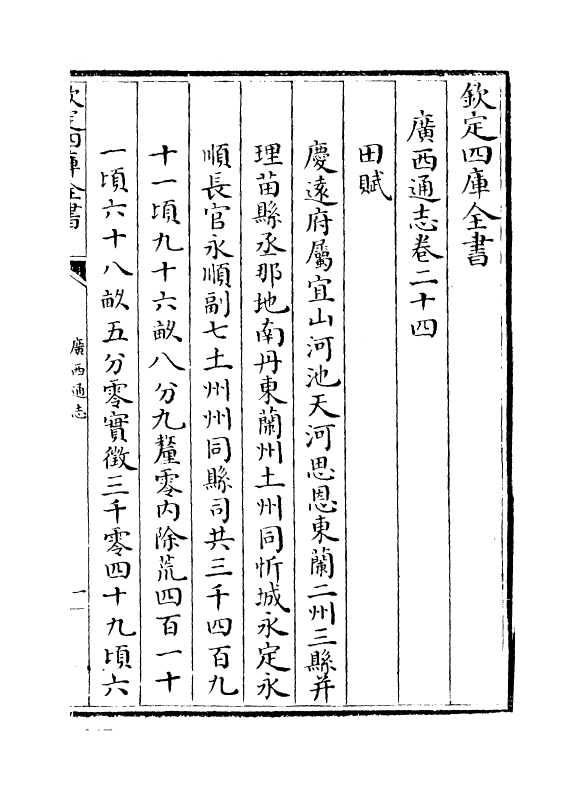 欽定四庫全書
廣西通志卷二十四
田賦
慶遠府屬宜山河池天河思恩東蘭二州三縣并
理苗縣丞那地南丹東蘭州土州同忻城永定永
順長官永順副七土州州同縣司共三千四百九
十一頃九十六畝八分九釐零内除荒四百一十
一頃六十八畝五分零實徵三千零四十九頃六
欽定四庫全書
廣西通志
一